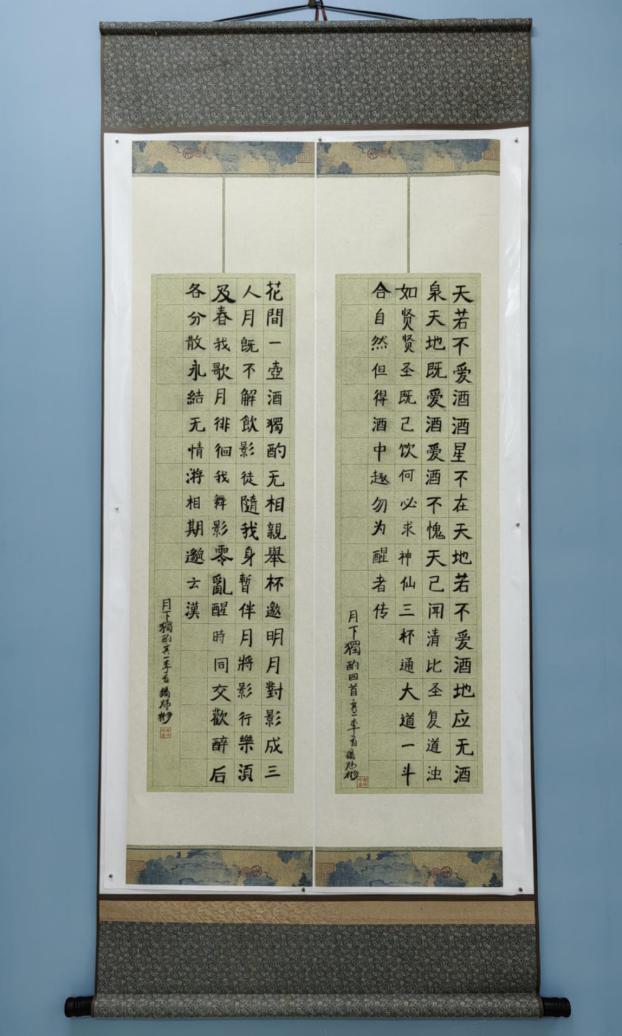 天若不爱酒酒星不在天地若不爱酒地应无酒
泉天地既爱酒爱酒不愧天己闻清比圣复道浊
如贤贤圣既己饮何必求神仙三杯通大道一斗
合自然但得酒中趣勿为醒者传
月下獨酌四首
花間一壺酒獨酌无相親舉杯邀明月對影成三
人月既不解飲影徒隨我身暫伴月將影行樂須
及春我歌月徘徊我舞影零亂醒時同交歡醉后
各分散永結无情游相期邈云漢
月下獨酌